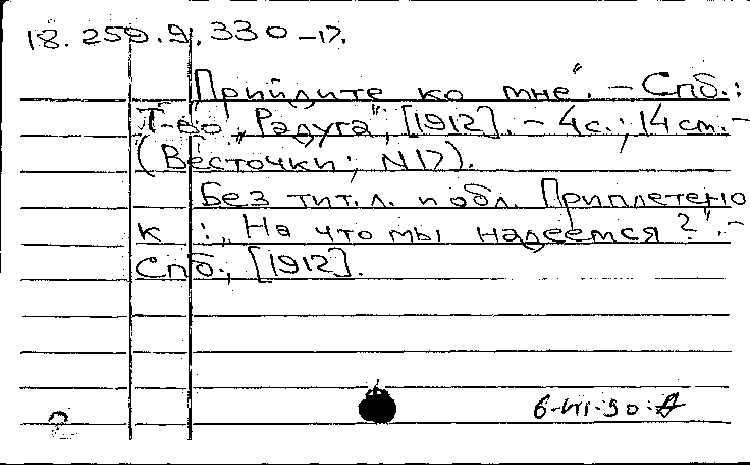 18.259.9.330-17.
„Прийдите ко мне". - Спб.:
Т-во „Радуга", [1912]. - 4с.; 14 см. -
(Весточки; N17).
Без тит. л. и обл. Приплетено
к : „На что мы надеемся?". -
Спб., [1912].
2